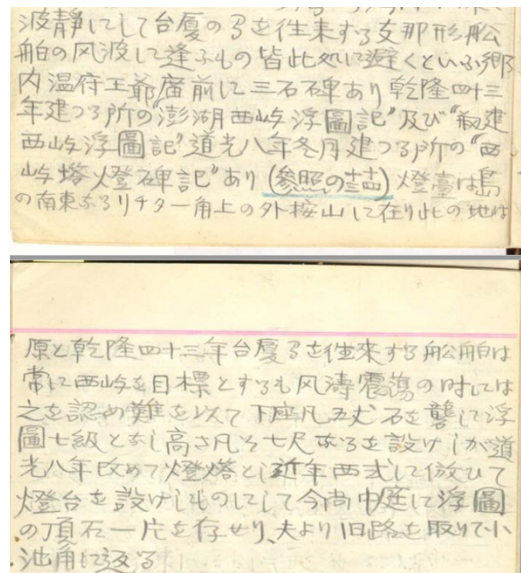 波靜にして台厦の間を往来する支那形舩
舶の风波に逢ふもの皆此処に避くといふ郷
内温府王爺廟前に三石碑あり乾隆四十三
年建つる所の“澎湖西屿浮圖記”及び“剏建
西屿浮圖記”道光八年冬月建つる所の“西
屿塔燈碑記”あり(参照の誌)燈臺は島
の南東なるリチター角上の外按山に在り此の地は
原と乾隆四十三年台厦間を往来する舩舶は
常に西屿を目標とするも风濤震蕩の时には
之を認め難を以て下座凡五丈石を甃して浮
圖七級となし高さ凡そ七尺なるを設けしが道
光八年改めて燈塔とし近年西式に倣ひて
燈台を設けしものにして今尚中庭に浮圖
の頂石一片を存せり、夫より旧路を取りて小
池角に返る